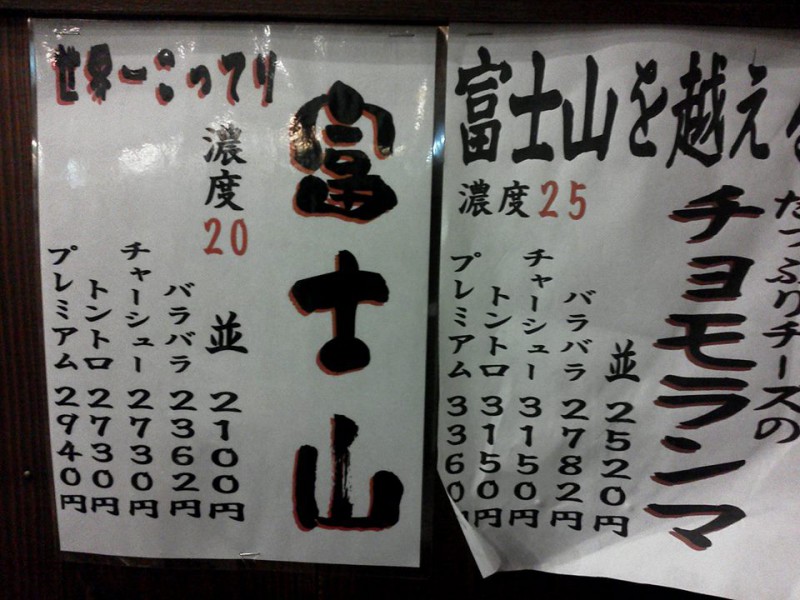 世界一こってり
富士山
濃度20
並 2100円
バラバラ 2362円
チャーシュー 2730円
トントロ 2730円
プレミアム 2940円
富士山を越える
たっぷりチーズの
チョモランマ
濃度25
並 2520円
バラバラ 2782円
チャーシュー 3150円
トントロ 3150円
プレミアム 3360円